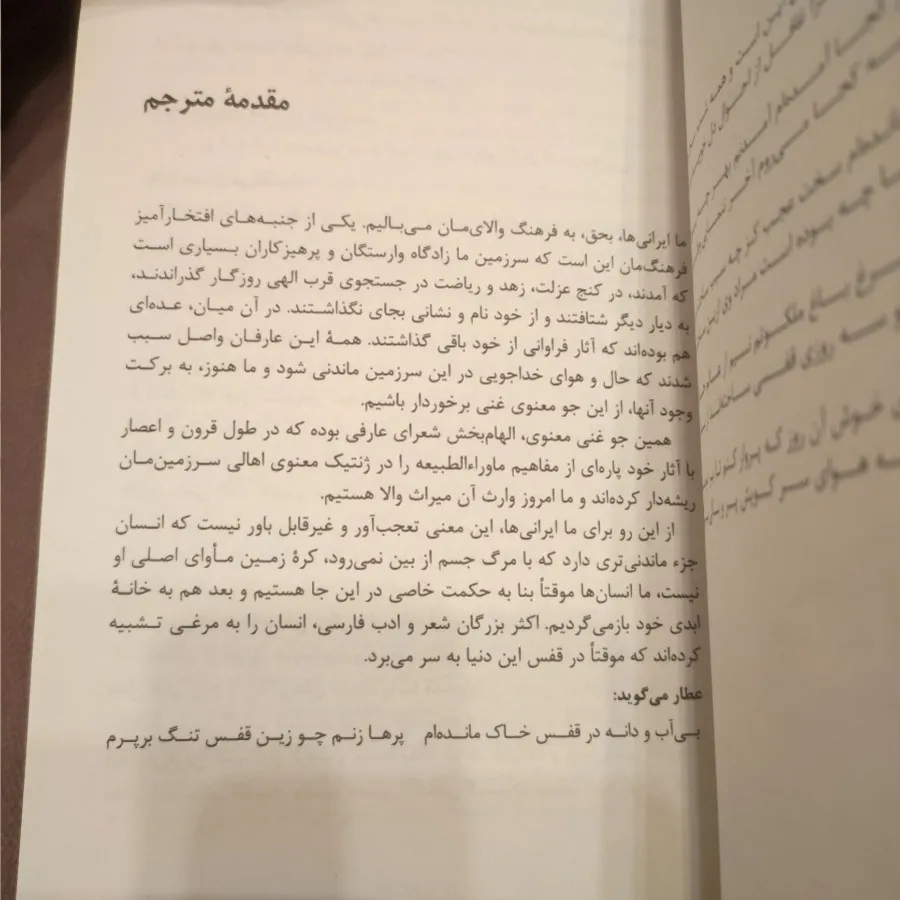 مقدمهٔ مترجم
ما ایرانی‌ها، بحق، به فرهنگ والای‌مان می‌بالیم. یکی از جنبه‌های افتخارآمیز
فرهنگ‌مان این است که سرزمین ما زادگاه وارستگان و پرهیزکاران بسیاری است
که آمدند، در کنج عزلت، زهد و ریاضت در جستجوی قرب الهی روزگار گذراندند،
به دیار دیگر شتافتند و از خود نام و نشانی بجای نگذاشتند. در آن میان، عده‌ای
هم بوده‌اند که آثار فراوانی از خود باقی گذاشتند. همهٔ این عارفان واصل سبب
شدند که حال و هوای خداجویی در این سرزمین ماندنی شود و ما هنوز، به برکت
وجود آنها، از این جو معنوی غنی برخوردار باشیم.
همین جو غنی معنوی، الهام‌بخش شعرای عارفی بوده که در طول قرون و اعصار
با آثار خود پاره‌ای از مفاهیم ماوراءالطبیعه را در ژنتیک معنوی اهالی سرزمین‌مان
ریشه‌دار کرده‌اند و ما امروز وارث آن میراث والا هستیم.
از این رو برای ما ایرانی‌ها، این معنی تعجب‌آور و غیرقابل باور نیست که انسان
جزء ماندنی‌تری دارد که با مرگ جسم از بین نمی‌رود، کرهٔ زمین مأوای اصلی او
نیست، ما انسان‌ها موقتاً بنا به حکمت خاصی در این جا هستیم و بعد هم به خانهٔ
ابدی خود بازمی‌گردیم. اکثر بزرگان شعر و ادب فارسی، انسان را به مرغی تشبیه
کرده‌اند که موقتاً در قفس این دنیا به سر می‌برد.
عطار می‌گوید:
بی‌آب و دانه در قفس خاک مانده‌ام پرها زنم چو زین قفس تنگ برپرم
کجا آمده‌ام آمدنم بهر چه
کجا می‌روم آخر
مانده‌ام سخت عجب کز چه سبب
چه بوده است مراد وی ازین
باغ ملکوتم نیم از عالم
سه روزی قفسی ساخته‌اند
خوش آن روز که پرواز کنم تا بر
هوای سر کویش پر و بالی